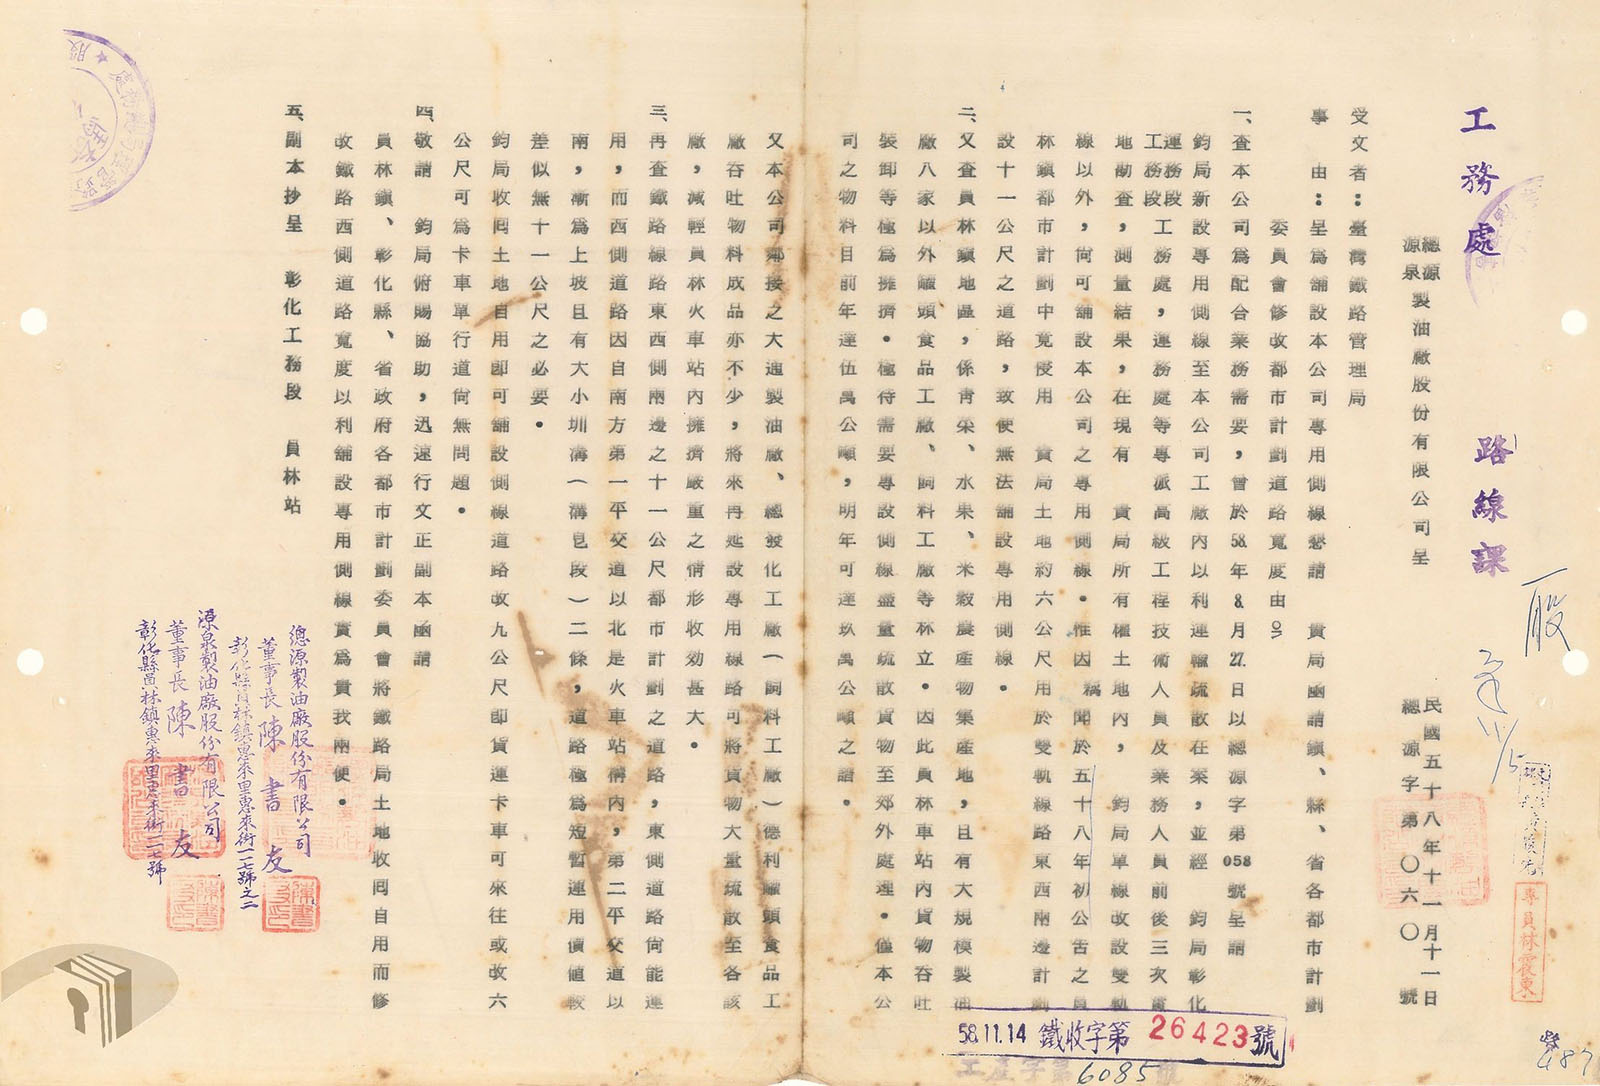 工務處 路線課
總源
源泉製油廠股份有限公司呈
民國五十八年十一月十一日
總源字第〇六〇號
受文者：臺灣鐵路管理局
事 由：呈為舖設本公司專用側線懇請 貴局函請鎮、縣、省各都市計劃
委員會修改都市計劃道路寬度由。
一、查本公司為配合業務需要，曾於58.年8.月27.日以總源字第058號呈請
鈞局新設專用側線至本公司工廠內以利運輸疏散在案，並經 鈞局彰化
運務段
工務段 工務處，運務處等專派高級工程技術人員及業務人員前後三次實
地勘查，測量結果，在現有 貴局所有權土地內， 鈞局單線改設雙軌
線以外，尚可舖設本公司之專用側線。惟因 稱聞於五十八年初公告之員
林鎮都市計劃中竟侵用 貴局土地約六公尺用於雙軌線路東西兩邊計劃
設十一公尺之道路，致使無法舖設專用側線。
二、又查員林鎮地區，係靑菜、水果、米穀農產物集產地，且有大規模製油
廠八家以外罐頭食品工廠、飼料工廠等林立。因此員林車站內貨物吞吐
裝卸等極為擁擠。極待需要專設側線盡量疏散貨物至郊外處理。僅本公
司之物料目前年達伍萬公噸，明年可達玖萬公噸之譜。
又本公司鄰接之大進製油廠、總發化工廠（飼料工廠）德利罐頭食品工
廠吞吐物料成品亦不少，將來再延設專用線路可將貨物大量疏散至各該
廠，減輕員林火車站內擁擠嚴重之情形收効甚大。
三、再查鐵路線路東西側兩邊之十一公尺都市計劃之道路，東側道路尙能運
用，而西側道路因自南方第一平交道以北是火車站構內，第二平交道以
南，漸為上坡且有大小圳溝（溝皂段）二條，道路極為短暫運用價值較
差似無十一公尺之必要。
鈞局收囘土地自用卽可舖設側線道路改九公尺卽貨運卡車可來往或改六
公尺可為卡車單行道尙無問題。
四、敬請 鈞局俯賜協助，迅速行文正副本函請
員林鎮、彰化縣、省政府各都市計劃委員會將鐵路局土地收囘自用而修
改鐵路西側道路寬度以利舖設專用側線實為貴我兩便。
五、副本抄呈 彰化工務段 員林站
總源製油廠股份有限公司
董事長 陳書友
彰化縣員林鎮惠來里惠來街一一七號之二
源泉製油廠股份有限公司
董事長 陳書友
彰化縣員林鎮惠來里惠來街一一七號
58.11.14 鐵收字第26423號
6085
專員林震東
487